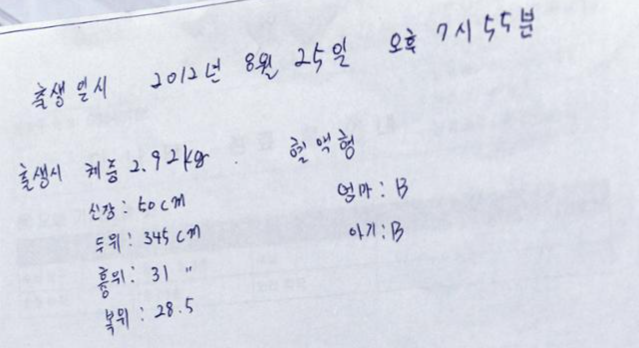 출생일시 2012년 8월 25일 오후 7시 55분
출생시 체중 2.92kg 혈액형
신장: 50cm 엄마: B
두위: 345cm 아기: B
흉위: 31 "
복위: 28.5